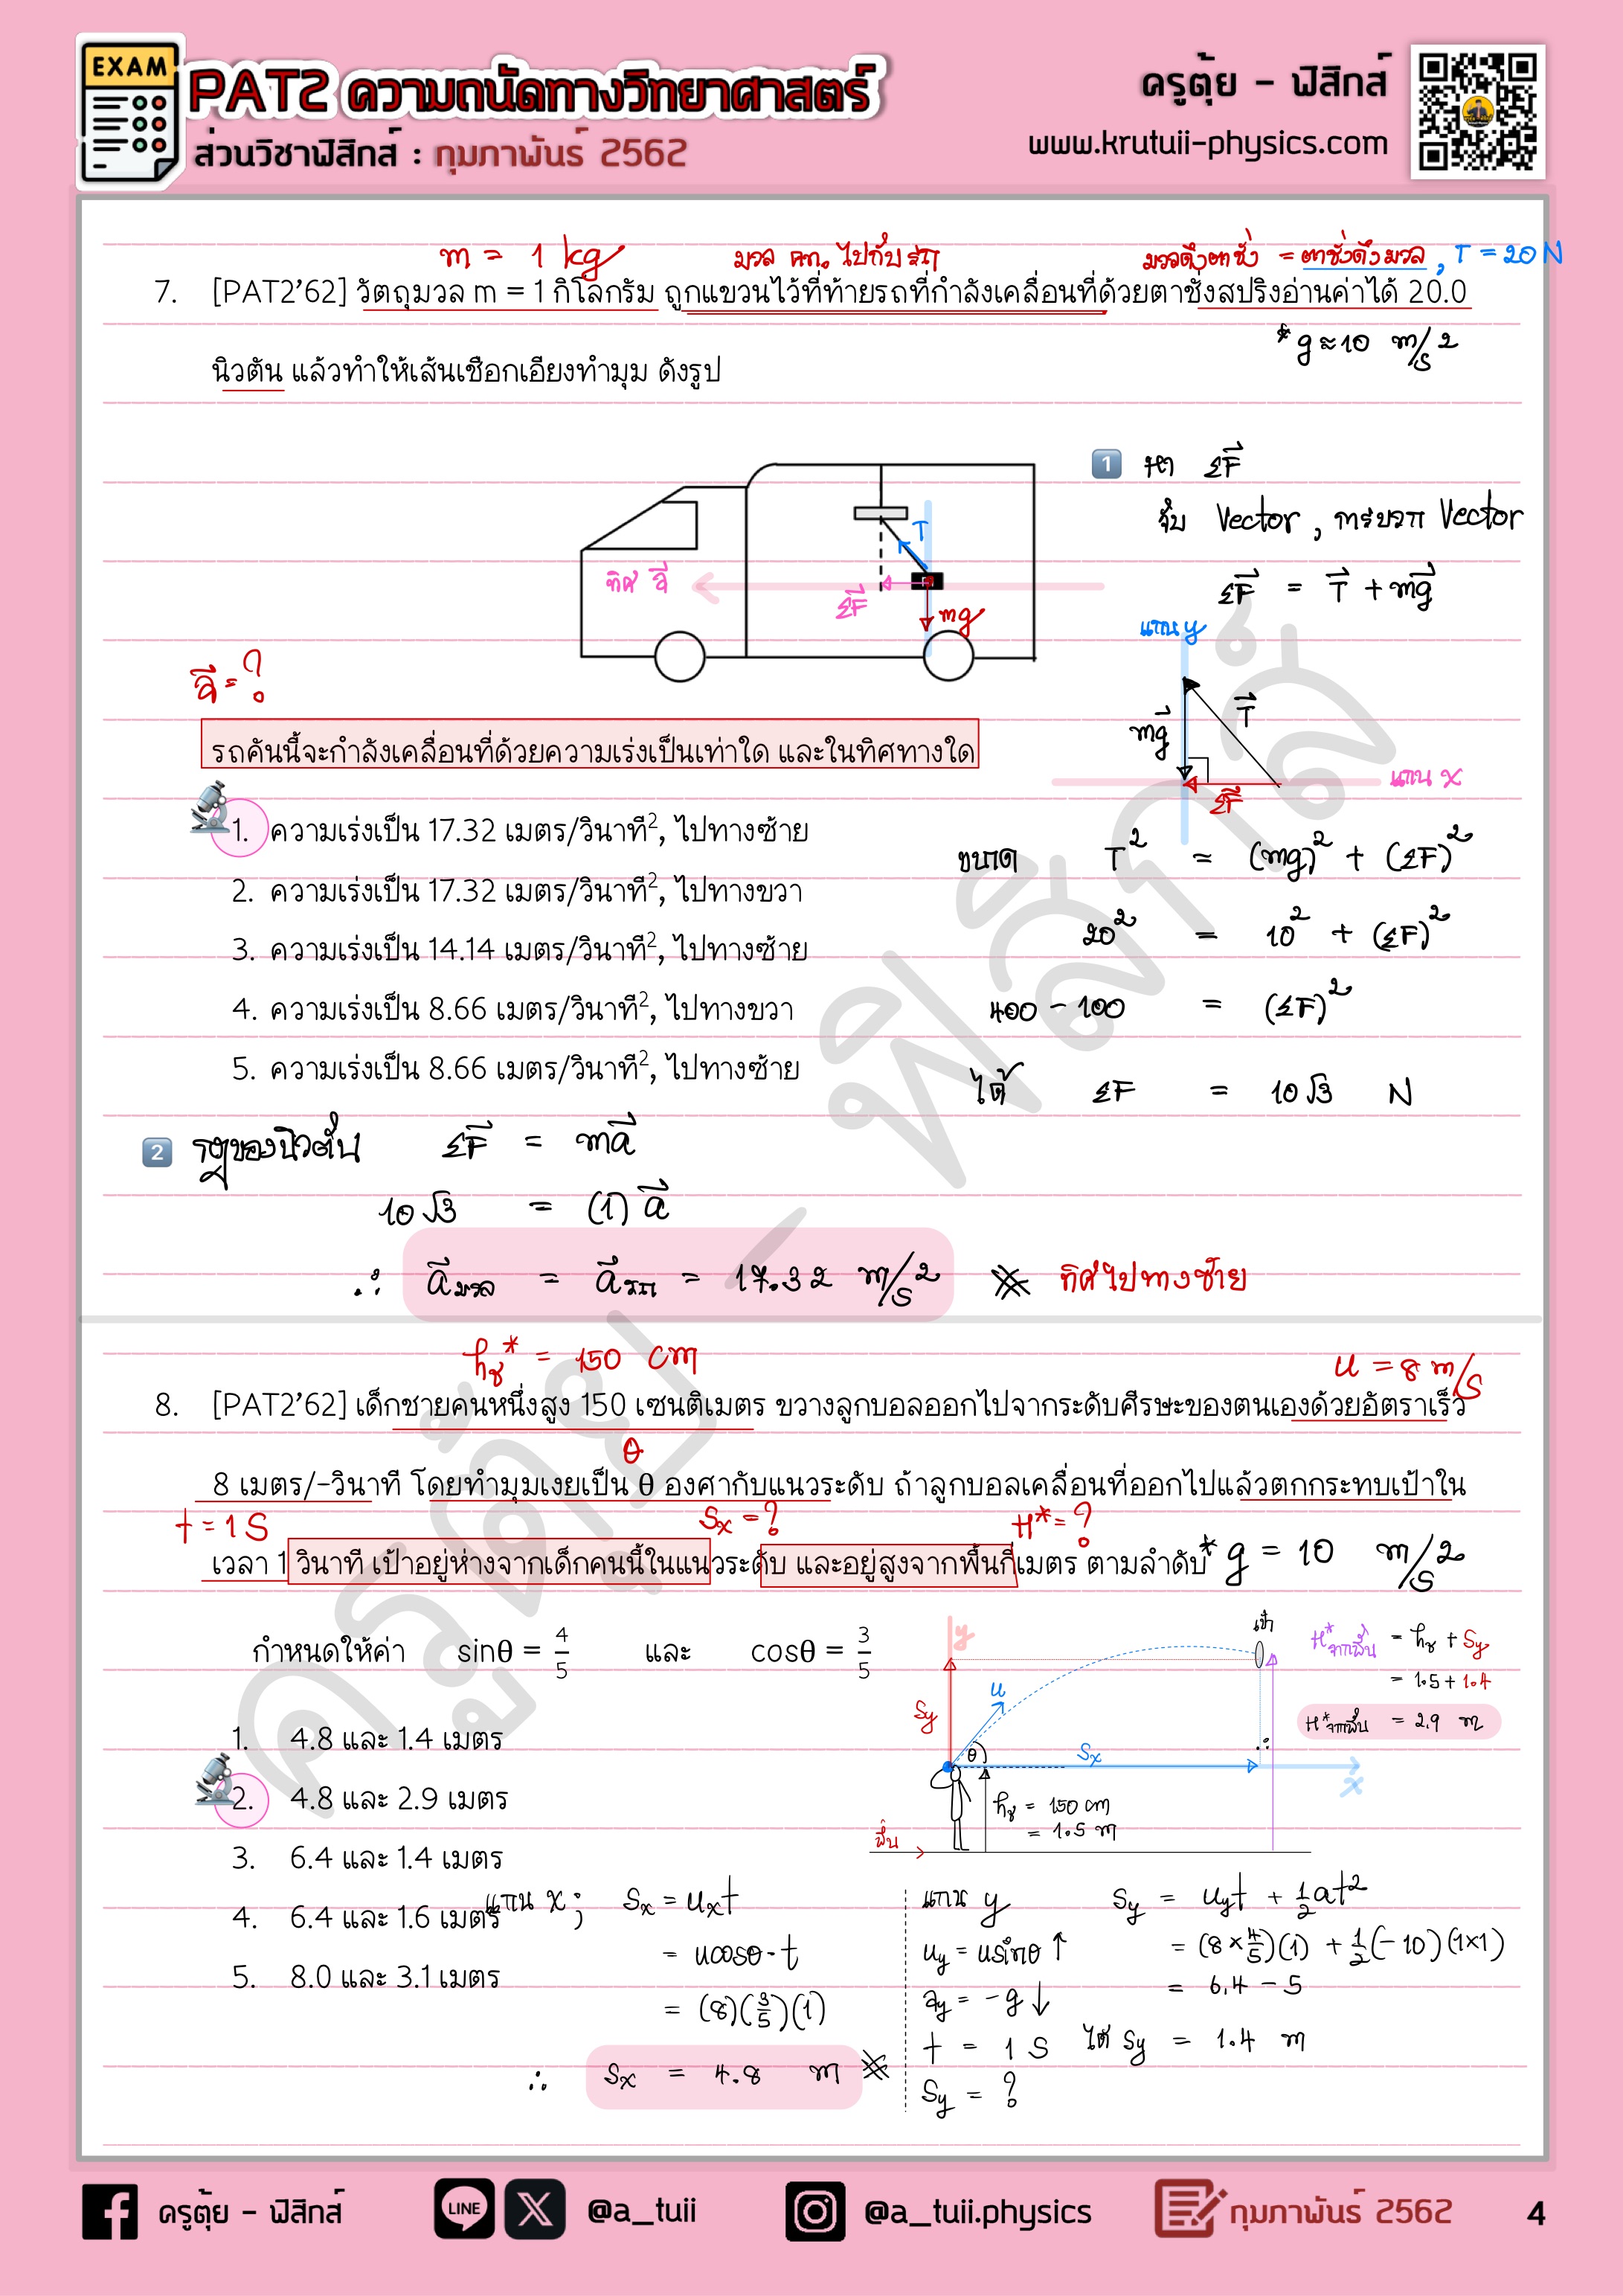 EXAM
PAT2 ความถนัดทางวิทยาศาสตร์
ส่วนวิชาฟิสิกส์ : กุมภาพันธ์ 2562
ครูตุ้ย - ฟิสิกส์
www.krutuii-physics.com
m = 1 kg
มวล คท. ไปกับรถ
มวลดึงตาชั่ง = ตาชั่งดึงมวล , T = 20 N
7. [PAT2’62] วัตถุมวล m = 1 กิโลกรัม ถูกแขวนไว้ที่ท้ายรถที่กำลังเคลื่อนที่ด้วยตาชั่งสปริงอ่านค่าได้ 20.0
* g ≈ 10 m/s2
นิวตัน แล้วทำให้เส้นเชือกเอียงทำมุม ดังรูป
T
ทิศ a⃗
ΣF⃗
mg
1 หา ΣF⃗
จับ Vector , การบวก Vector
ΣF⃗ = T⃗ + mg⃗
แกน y
mg⃗
T⃗
แกน x
ΣF⃗
a⃗ = ?
รถคันนี้จะกำลังเคลื่อนที่ด้วยความเร่งเป็นเท่าใด และในทิศทางใด
1. ความเร่งเป็น 17.32 เมตร/วินาที², ไปทางซ้าย
2. ความเร่งเป็น 17.32 เมตร/วินาที², ไปทางขวา
3. ความเร่งเป็น 14.14 เมตร/วินาที², ไปทางซ้าย
4. ความเร่งเป็น 8.66 เมตร/วินาที², ไปทางขวา
5. ความเร่งเป็น 8.66 เมตร/วินาที², ไปทางซ้าย
ขนาด T² = (mg)² + (ΣF)²
20² = 10² + (ΣF)²
400 - 100 = (ΣF)²
ได้ ΣF = 10√3 N
2 กฎของนิวตัน ΣF⃗ = ma⃗
10√3 = (1) a⃗
∴ a⃗มวล = a⃗รถ = 17.32 m/s2 ※ ทิศไปทางซ้าย
hช* = 150 cm
u = 8 m/s
8. [PAT2’62] เด็กชายคนหนึ่งสูง 150 เซนติเมตร ขวางลูกบอลออกไปจากระดับศีรษะของตนเองด้วยอัตราเร็ว
θ
8 เมตร/-วินาที โดยทำมุมเงยเป็น θ องศากับแนวระดับ ถ้าลูกบอลเคลื่อนที่ออกไปแล้วตกกระทบเป้าใน
t = 1 S
Sx = ?
H* = ?
เวลา 1 วินาที เป้าอยู่ห่างจากเด็กคนนี้ในแนวระดับ และอยู่สูงจากพื้นกี่เมตร ตามลำดับ * g = 10 m/s2
กำหนดให้ค่า sinθ = 4/5 และ cosθ = 3/5
1. 4.8 และ 1.4 เมตร
2. 4.8 และ 2.9 เมตร
3. 6.4 และ 1.4 เมตร
4. 6.4 และ 1.6 เมตร
5. 8.0 และ 3.1 เมตร
y
เป้า
Sy
u
θ
Sx
x
hช = 150 cm
= 1.5 m
พื้น
H*จากพื้น = hช + Sy
= 1.5 + 1.4
∴ H*จากพื้น = 2.9 m
แกน x ; Sx = uxt
= ucosθ · t
= (8)(3/5)(1)
∴ Sx = 4.8 m ※
แกน y
uy = usinθ ↑
ay = -g ↓
t = 1 S
Sy = ?
Sy = uyt + ½at²
= (8 × 4/5)(1) + ½(-10)(1×1)
= 6.4 - 5
ได้ Sy = 1.4 m
ครูตุ้ย - ฟิสิกส์
ครูตุ้ย - ฟิสิกส์
LINE
@a_tuii
@a_tuii.physics
กุมภาพันธ์ 2562
4